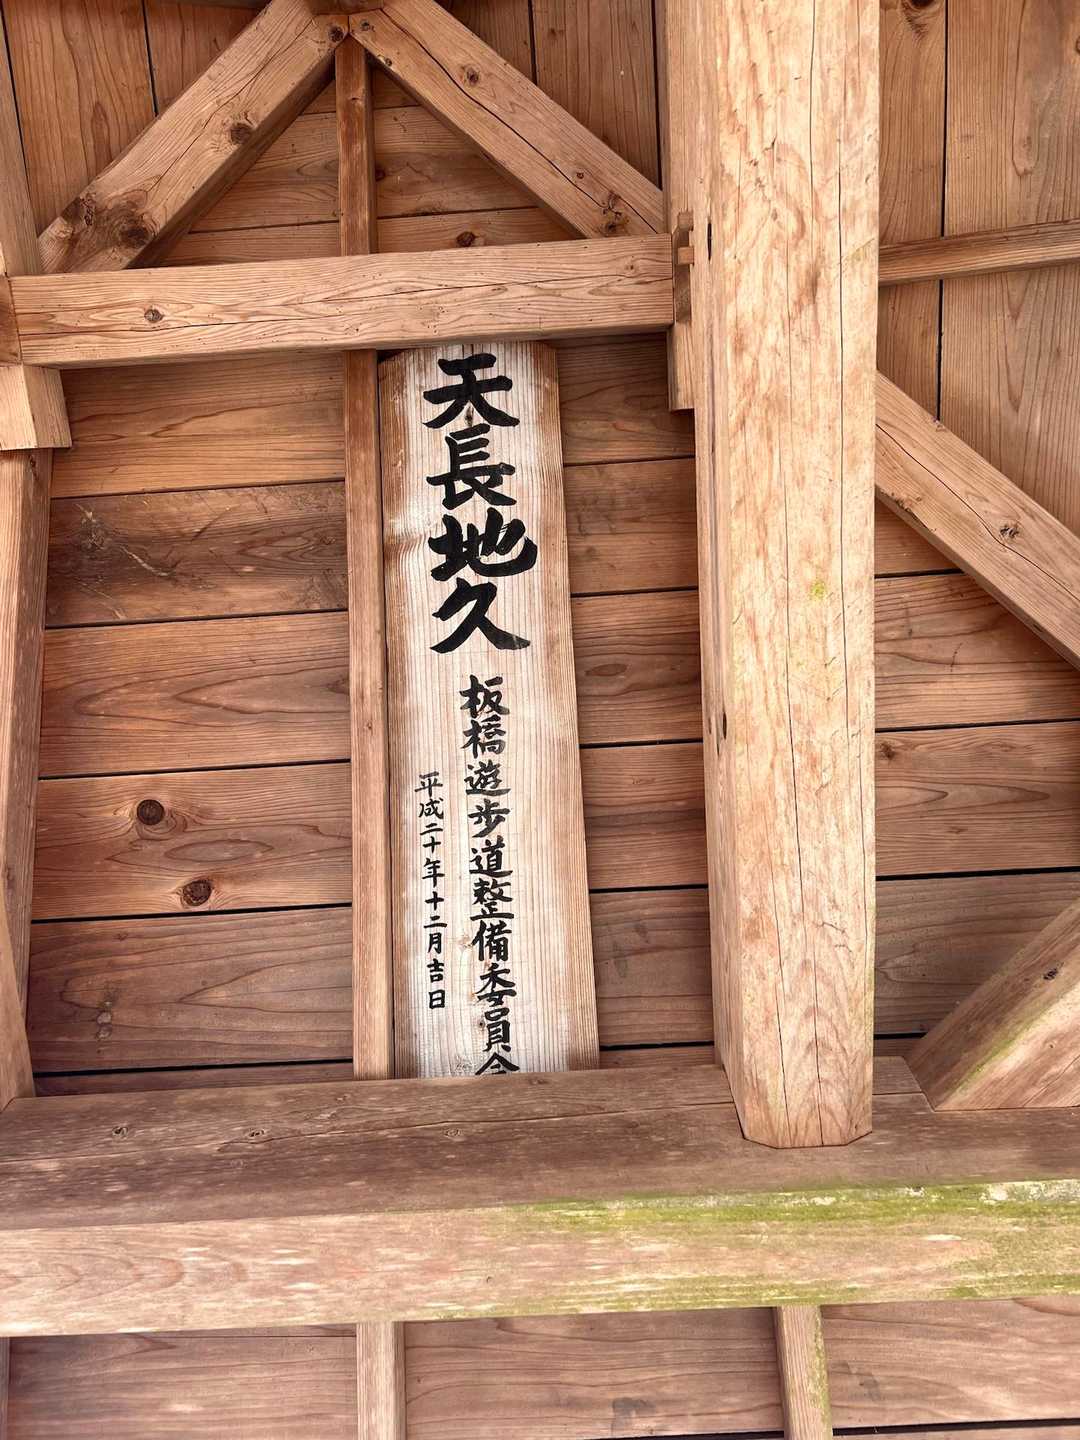 天長地久
板橋遊歩道整備委員会
平成二十年十二月吉日